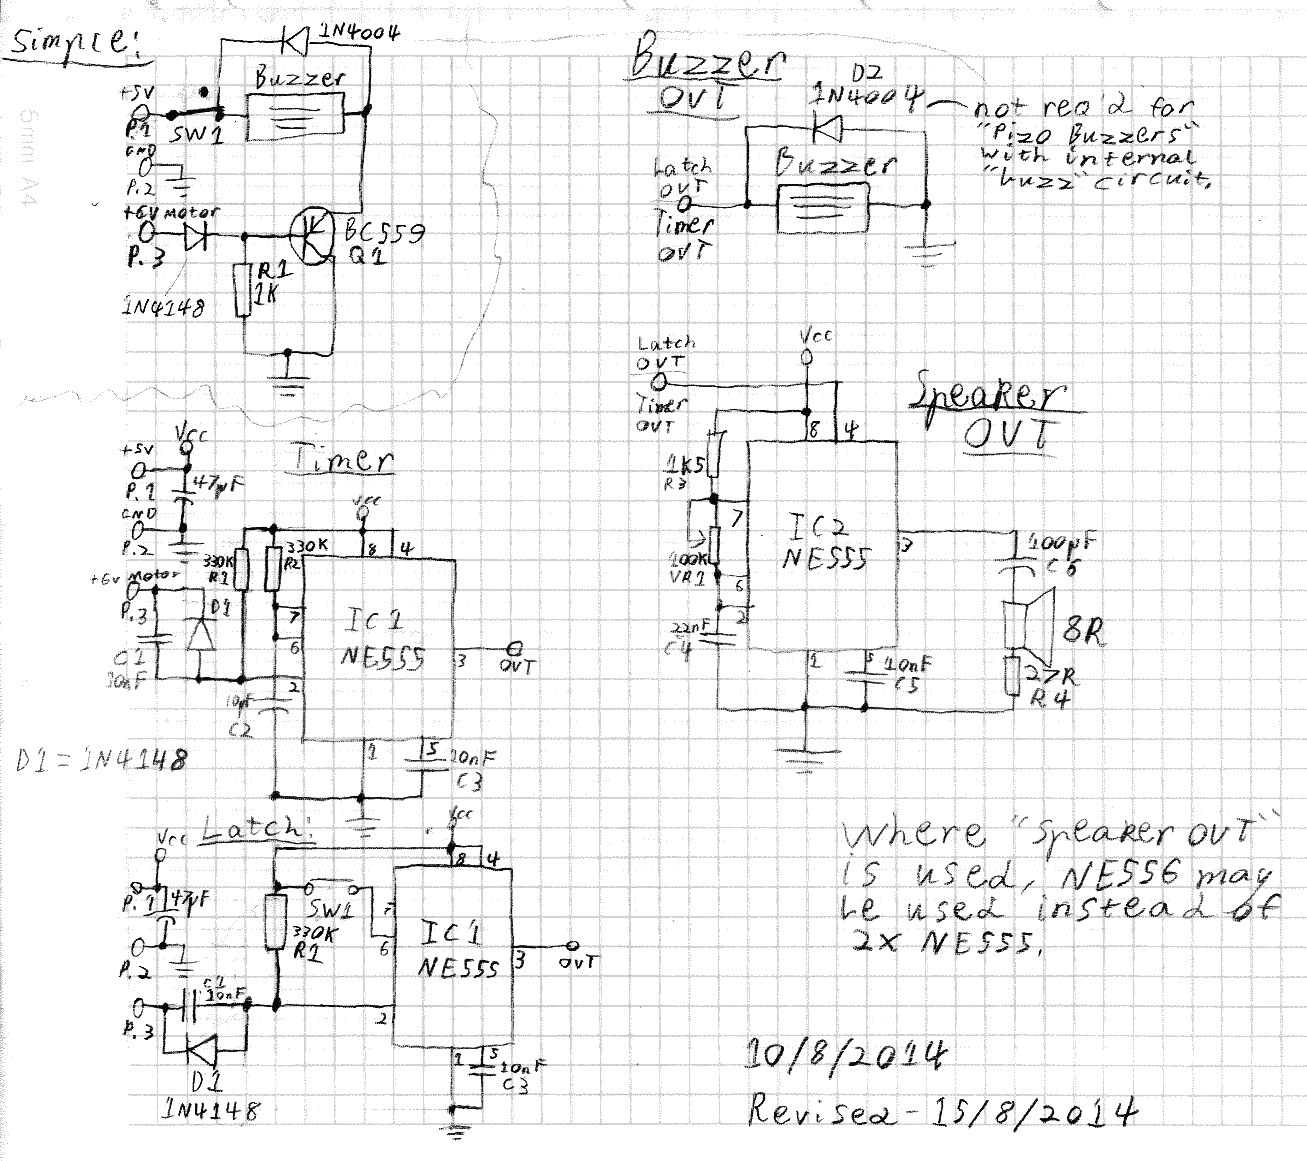 Simple:
1N4004
Buzzer
+5V
P.1
SW1
GND
P.2
+6V Motor
P.3
BC559
Q1
R1
1K
1N4148
5mm A4
Buzzer
OUT
D2
1N4004
not req'd for
"Pizo Buzzers"
with internal
"buzz" circuit.
Buzzer
Latch
OUT
Timer
OUT
Timer
+5V
Vcc
P.1
47µF
GND
P.2
+6V Motor
P.3
330K
R1
330K
R2
Vcc
8
4
D1
7
6
2
C1
10nF
10µF
C2
IC1
NE555
3
OUT
1
5
10nF
C3
D1 = 1N4148
Latch
OUT
Timer
OUT
Vcc
Speaker
OUT
8
4
1K5
R3
7
100K
VR1
6
2
22nF
C4
IC2
NE555
3
100µF
C6
8R
27R
R4
1
5
10nF
C5
Latch:
Vcc
P.1
47µF
P.2
P.3
C1
10nF
D1
1N4148
SW1
330K
R1
Vcc
8
4
7
6
2
IC1
NE555
3
OUT
1
5
10nF
C3
Where "Speaker OUT"
is used, NE556 may
be used instead of
2x NE555.
10/8/2014
Revised - 15/8/2014